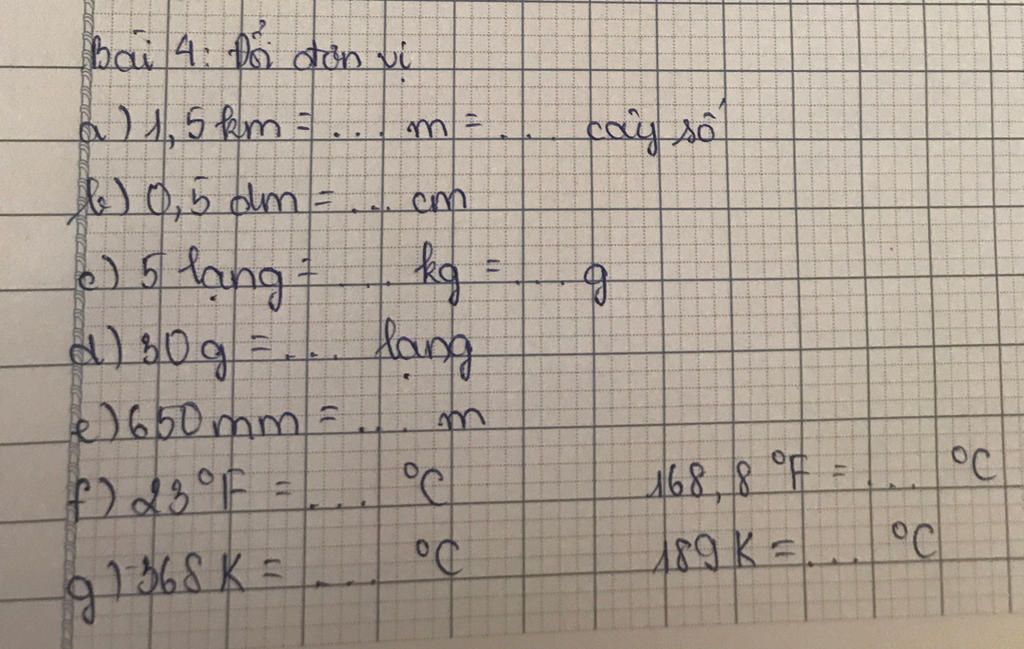 Bài 4: Đổi đơn vị
a) 1,5 km = ... m = ... cây số
b) 0,5 dm = ... cm
c) 5 lạng = ... kg = .... g
d) 30 g = .... lạng
e) 650 mm = .... m
f) 23 °F = .... °C 168,8 °F = .... °C
g) 368 K = .... °C 189 K = .... °C